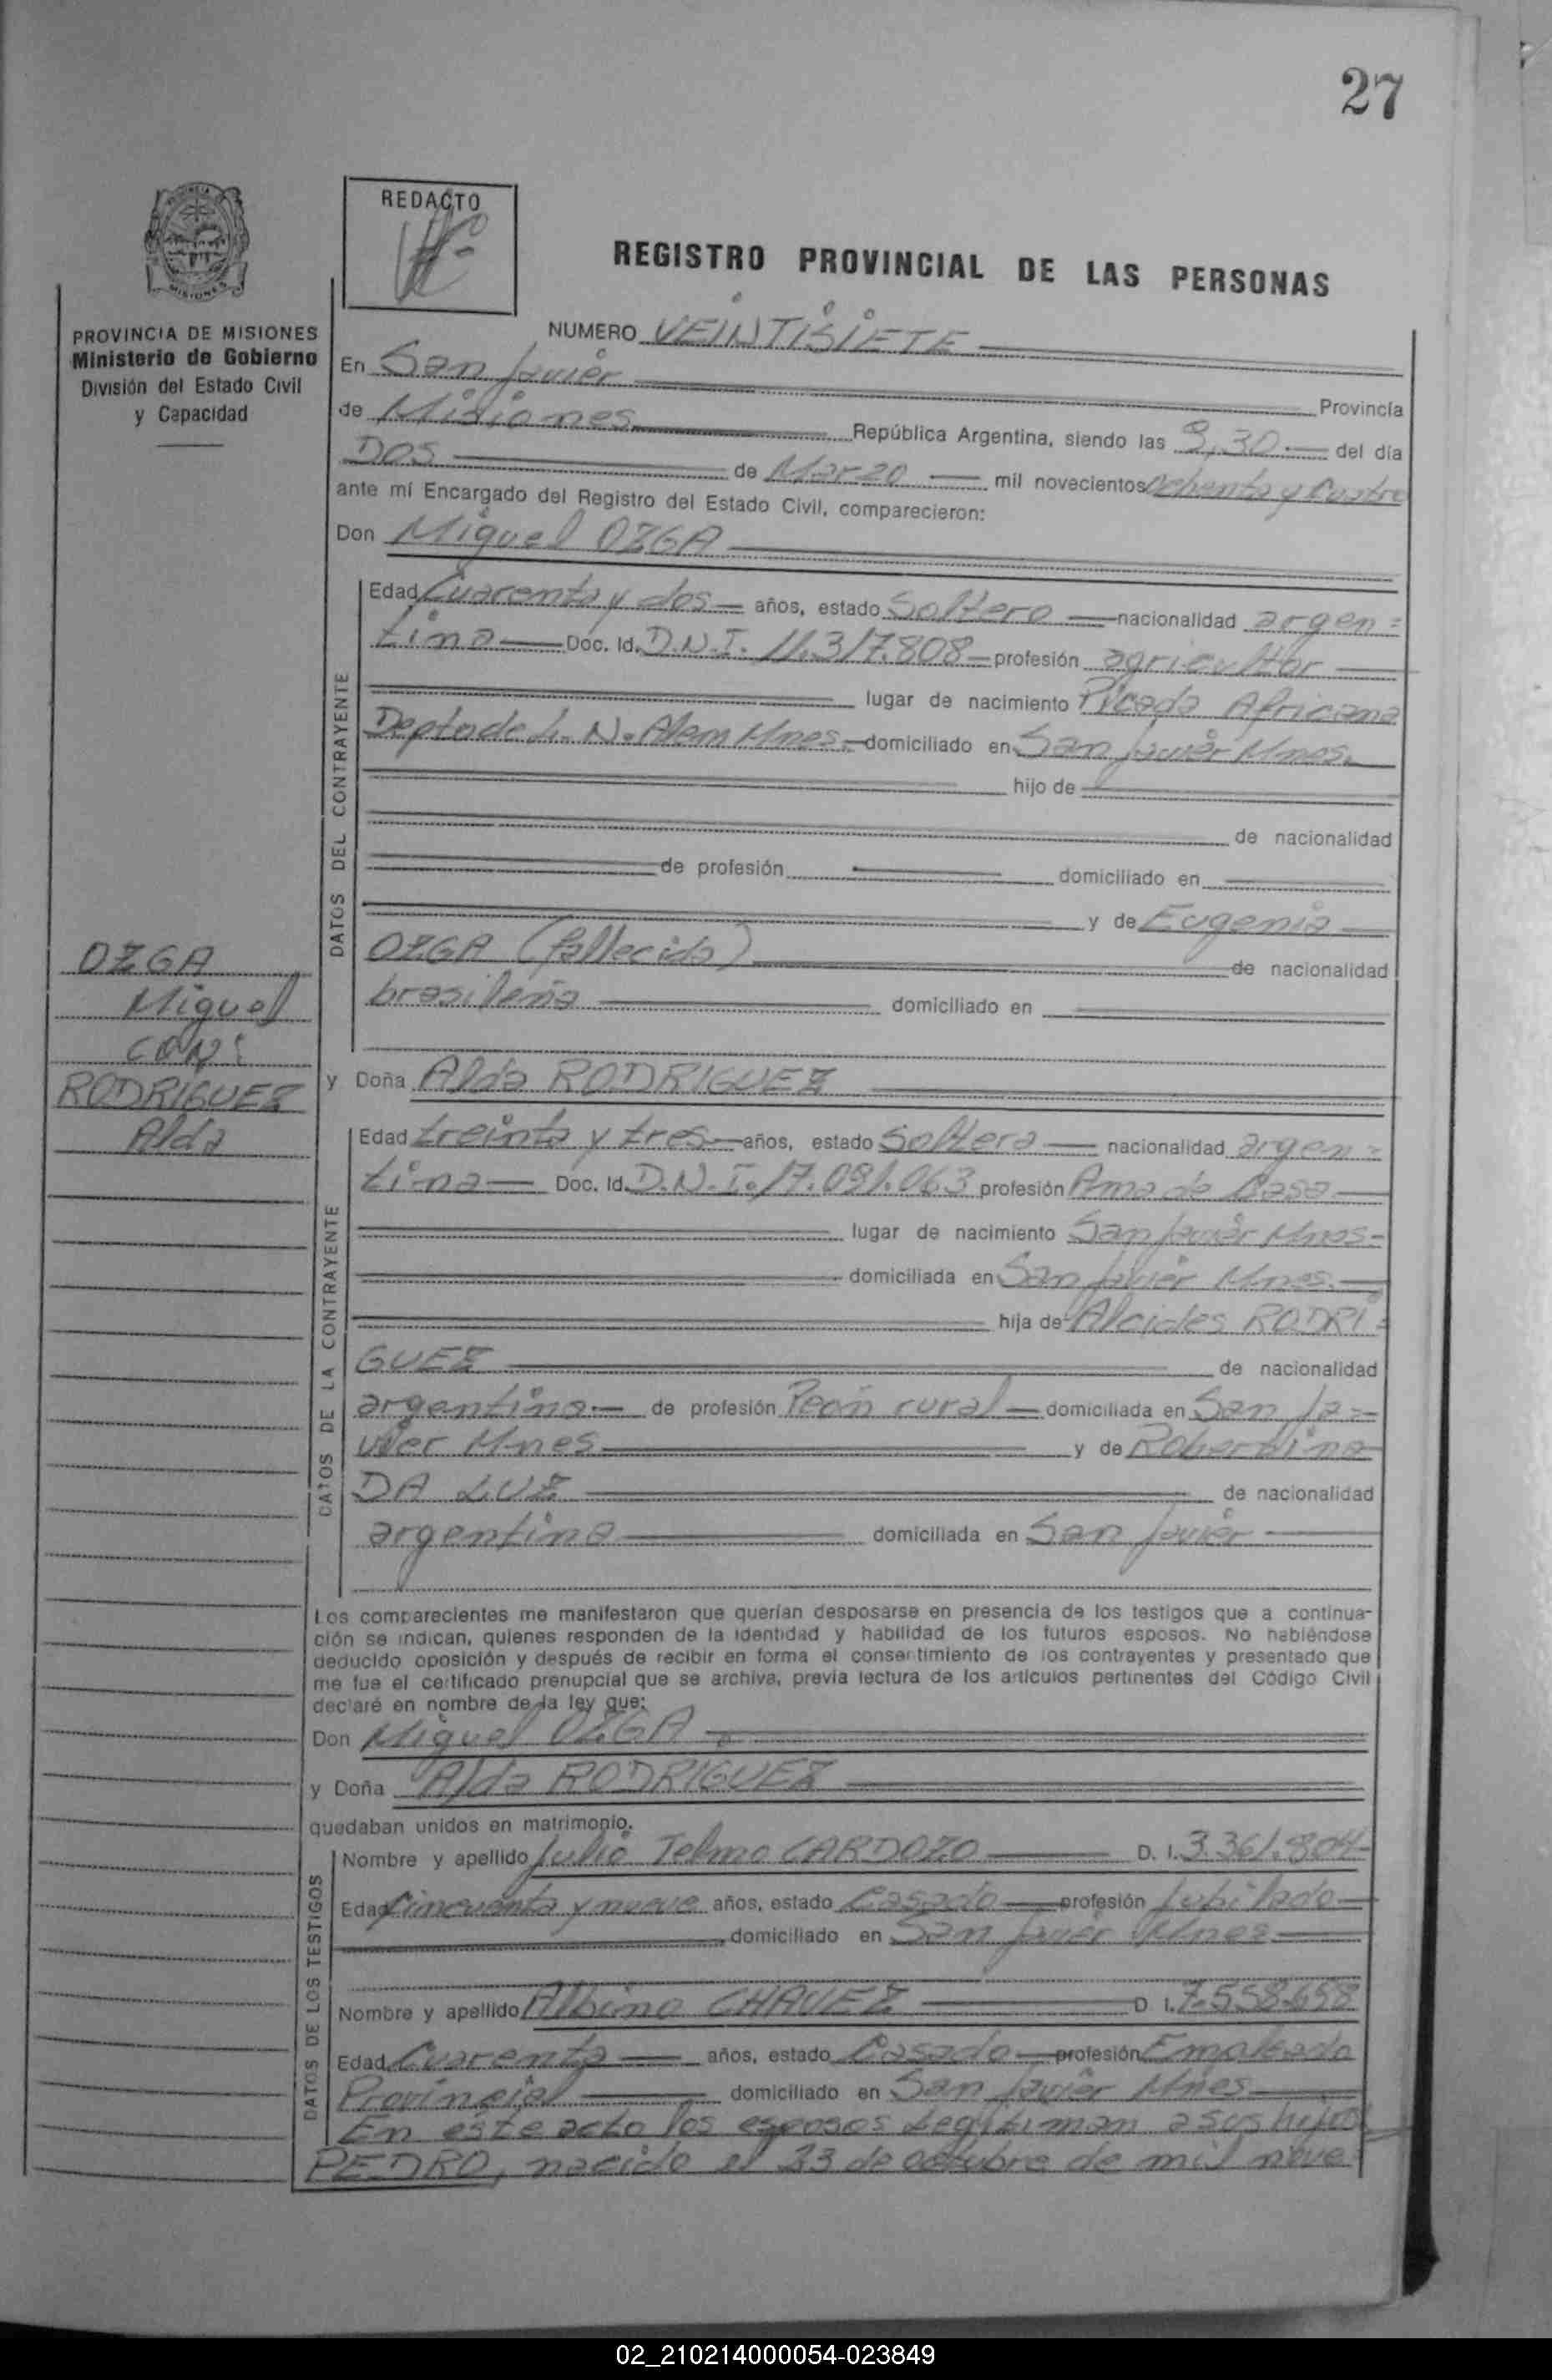 27
REDACTO
REGISTRO PROVINCIAL DE LAS PERSONAS
PROVINCIA DE MISIONES
Ministerio de Gobierno
División del Estado Civil
y Capacidad
NUMERO VEINTISIETE
En San Javier Provincia
de Misiones República Argentina, siendo las 9,30 del día
DOS de Marzo mil novecientos ochenta y cuatro
ante mí Encargado del Registro del Estado Civil, comparecieron:
Don Miguel OZGA
DATOS DEL CONTRAYENTE
Edad Cuarenta y dos años, estado Soltero nacionalidad argen=
tina Doc. Id. D.N.I. 11.317.808 profesión agricultor
lugar de nacimiento Picada Africana
Depto de L. N. Alem Mnes. domiciliado en San Javier Mnes.
hijo de
de nacionalidad
de profesión domiciliado en
y de Eugenia
OZGA (fallecida) de nacionalidad
brasileña domiciliado en
OZGA
Miguel
CON:
RODRIGUEZ
Alda
y Doña Alda RODRIGUEZ
DATOS DE LA CONTRAYENTE
Edad treinta y tres años, estado Soltera nacionalidad argen=
tina Doc. Id. D.N.I. 17.091.063 profesión Ama de Casa
lugar de nacimiento San Javier Mnes-
domiciliada en San Javier Mnes.
hija de Alcides RODRI=
GUEZ de nacionalidad
argentina de profesión Peón rural domiciliada en San Ja=
vier Mnes y de Robertina
DA LUZ de nacionalidad
argentina domiciliada en San Javier
Los comparecientes me manifestaron que querían desposarse en presencia de los testigos que a continua-
ción se indican, quienes responden de la identidad y habilidad de los futuros esposos. No habiéndose
deducido oposición y después de recibir en forma el consentimiento de los contrayentes y presentado que
me fue el certificado prenupcial que se archiva, previa lectura de los artículos pertinentes del Código Civil
declaré en nombre de la ley que:
Don Miguel OZGA
y Doña Alda RODRIGUEZ
quedaban unidos en matrimonio.
DATOS DE LOS TESTIGOS
Nombre y apellido Julio Telmo CARDOZO D. I. 3.361.804
Edad Cincuenta y nueve años, estado Casado profesión Jubilado
domiciliado en San Javier Mnes
Nombre y apellido Albino CHAVEZ D. I. 7.558.658
Edad Cuarenta años, estado Casado profesión Empleado
Provincial domiciliado en San Javier Mnes
En este acto los esposos Legitiman a sus hijos
PEDRO, nacido el 23 de octubre de mil nove
02_210214000054-023849